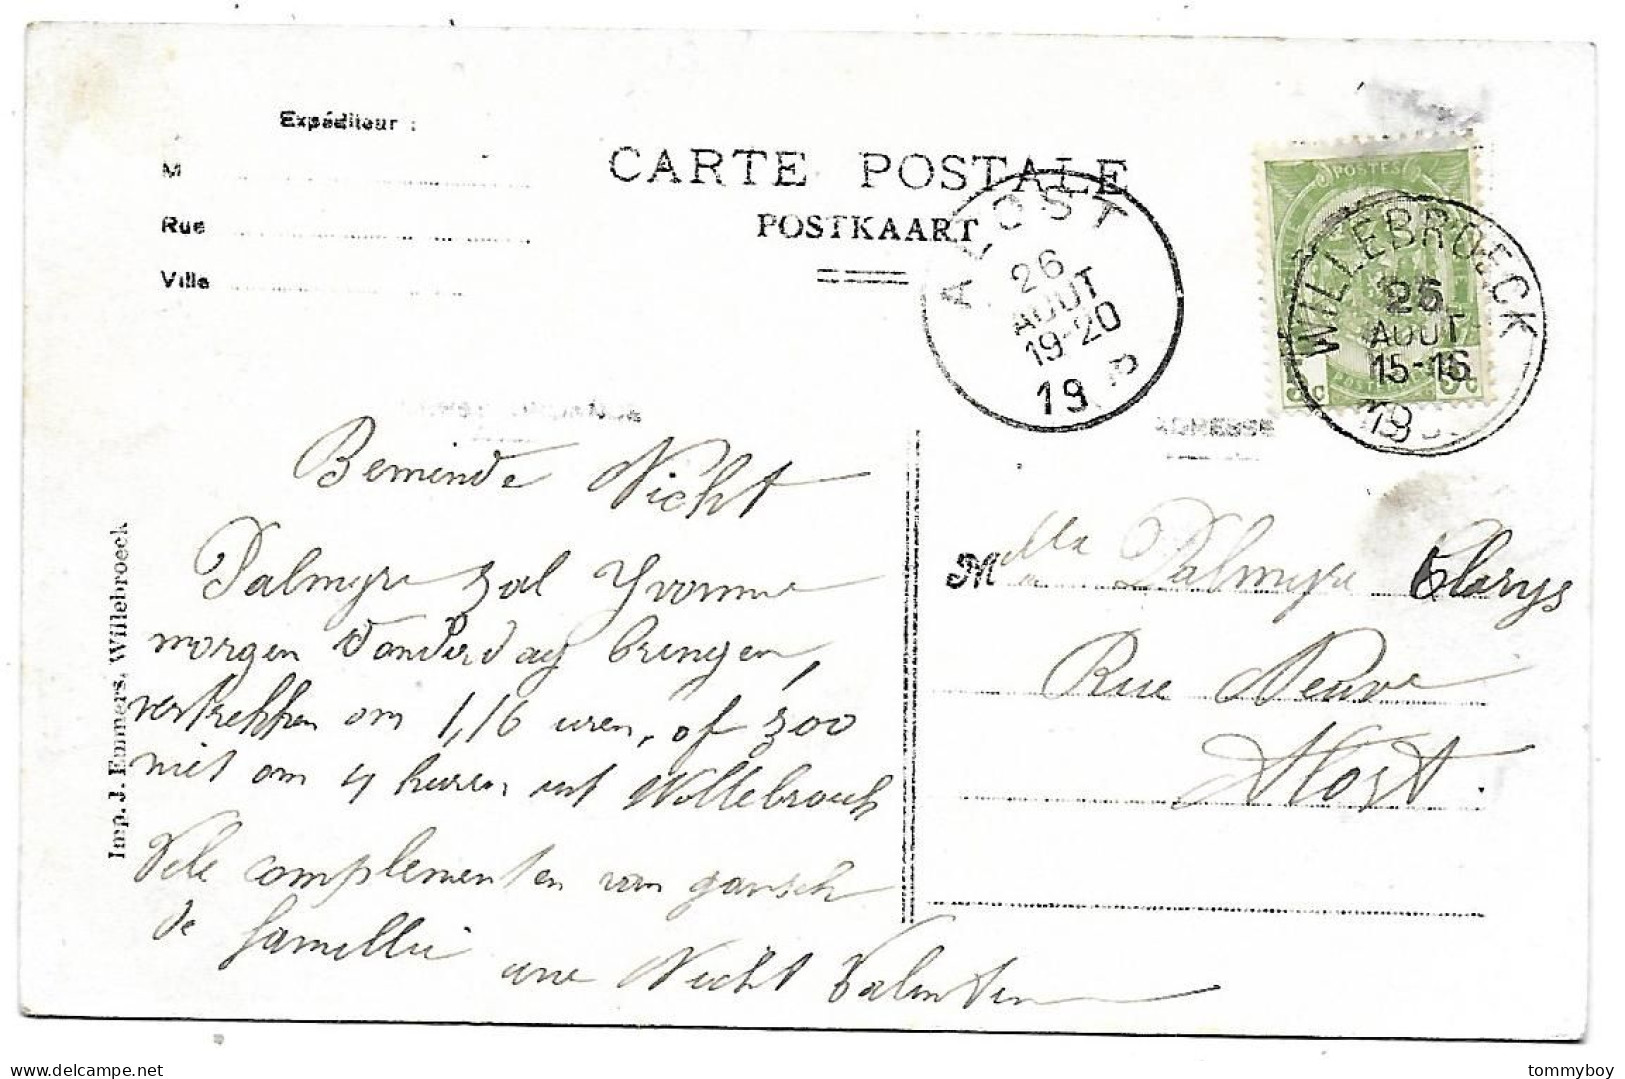 Expéditeur :
M
Rue
Ville
CARTE POSTALE
POSTKAART
ALOST
26
AOUT
19-20
19
POSTES
WILLEBROECK
26
AOUT
15-16
19
ADRESSE
Beminde Nicht
Palmyre zal Yvonne
morgen Donderdag brengen,
vertrekken om 1,16 uren, of zoo
niet om 4 huren uit Willebroeck
Vele complementen van gansch
de famillie uwe Nicht Valentin
Melle Palmyre Clarys
Rue Neuve
Alost
Imp. J. Emmers, Willebroeck
tommyboy